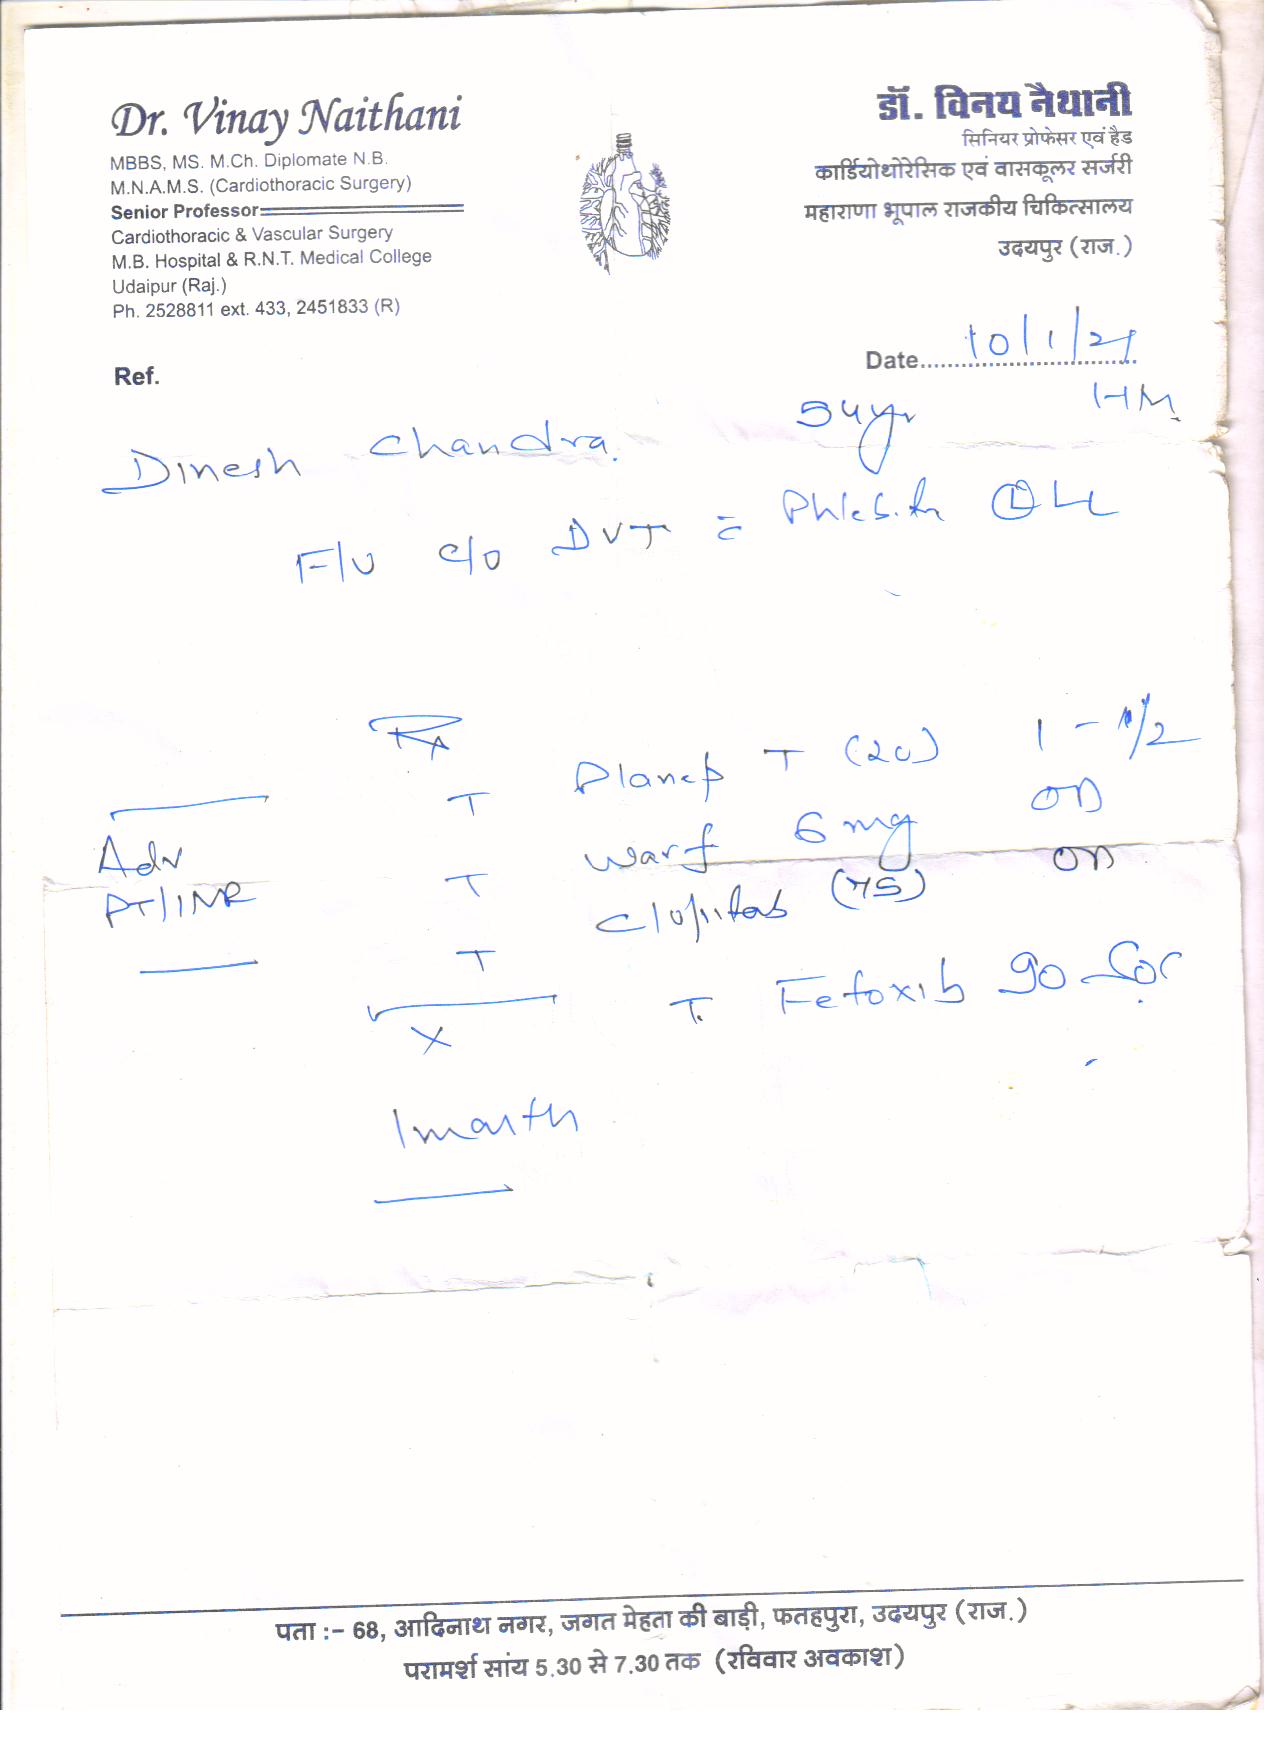 Dr. Vinay Naithani
MBBS, MS. M.Ch. Diplomate N.B.
M.N.A.M.S. (Cardiothoracic Surgery)
Senior Professor
Cardiothoracic & Vascular Surgery
M.B. Hospital & R.N.T. Medical College
Udaipur (Raj.)
Ph. 2528811 ext. 433, 2451833 (R)
डॉ. विनय नैथानी
सिनियर प्रोफेसर एवं हैड
कार्डियोथोरेसिक एवं वासकूलर सर्जरी
महाराणा भूपाल राजकीय चिकित्सालय
उदयपुर (राज.)
Ref.
Date 10/1/21
Dinesh Chandra. 54yr HM
F/U c/o DVT Ⓛ LL
Rx
T T (20) 1 - 1/2
T Warf 6 mg OD
T Clopitab (75) OD
T. 90
Adv
PT/INR
X
1 month
पता :- 68, आदिनाथ नगर, जगत मेहता की बाड़ी, फतहपुरा, उदयपुर (राज.)
परामर्श सांय 5.30 से 7.30 तक (रविवार अवकाश)